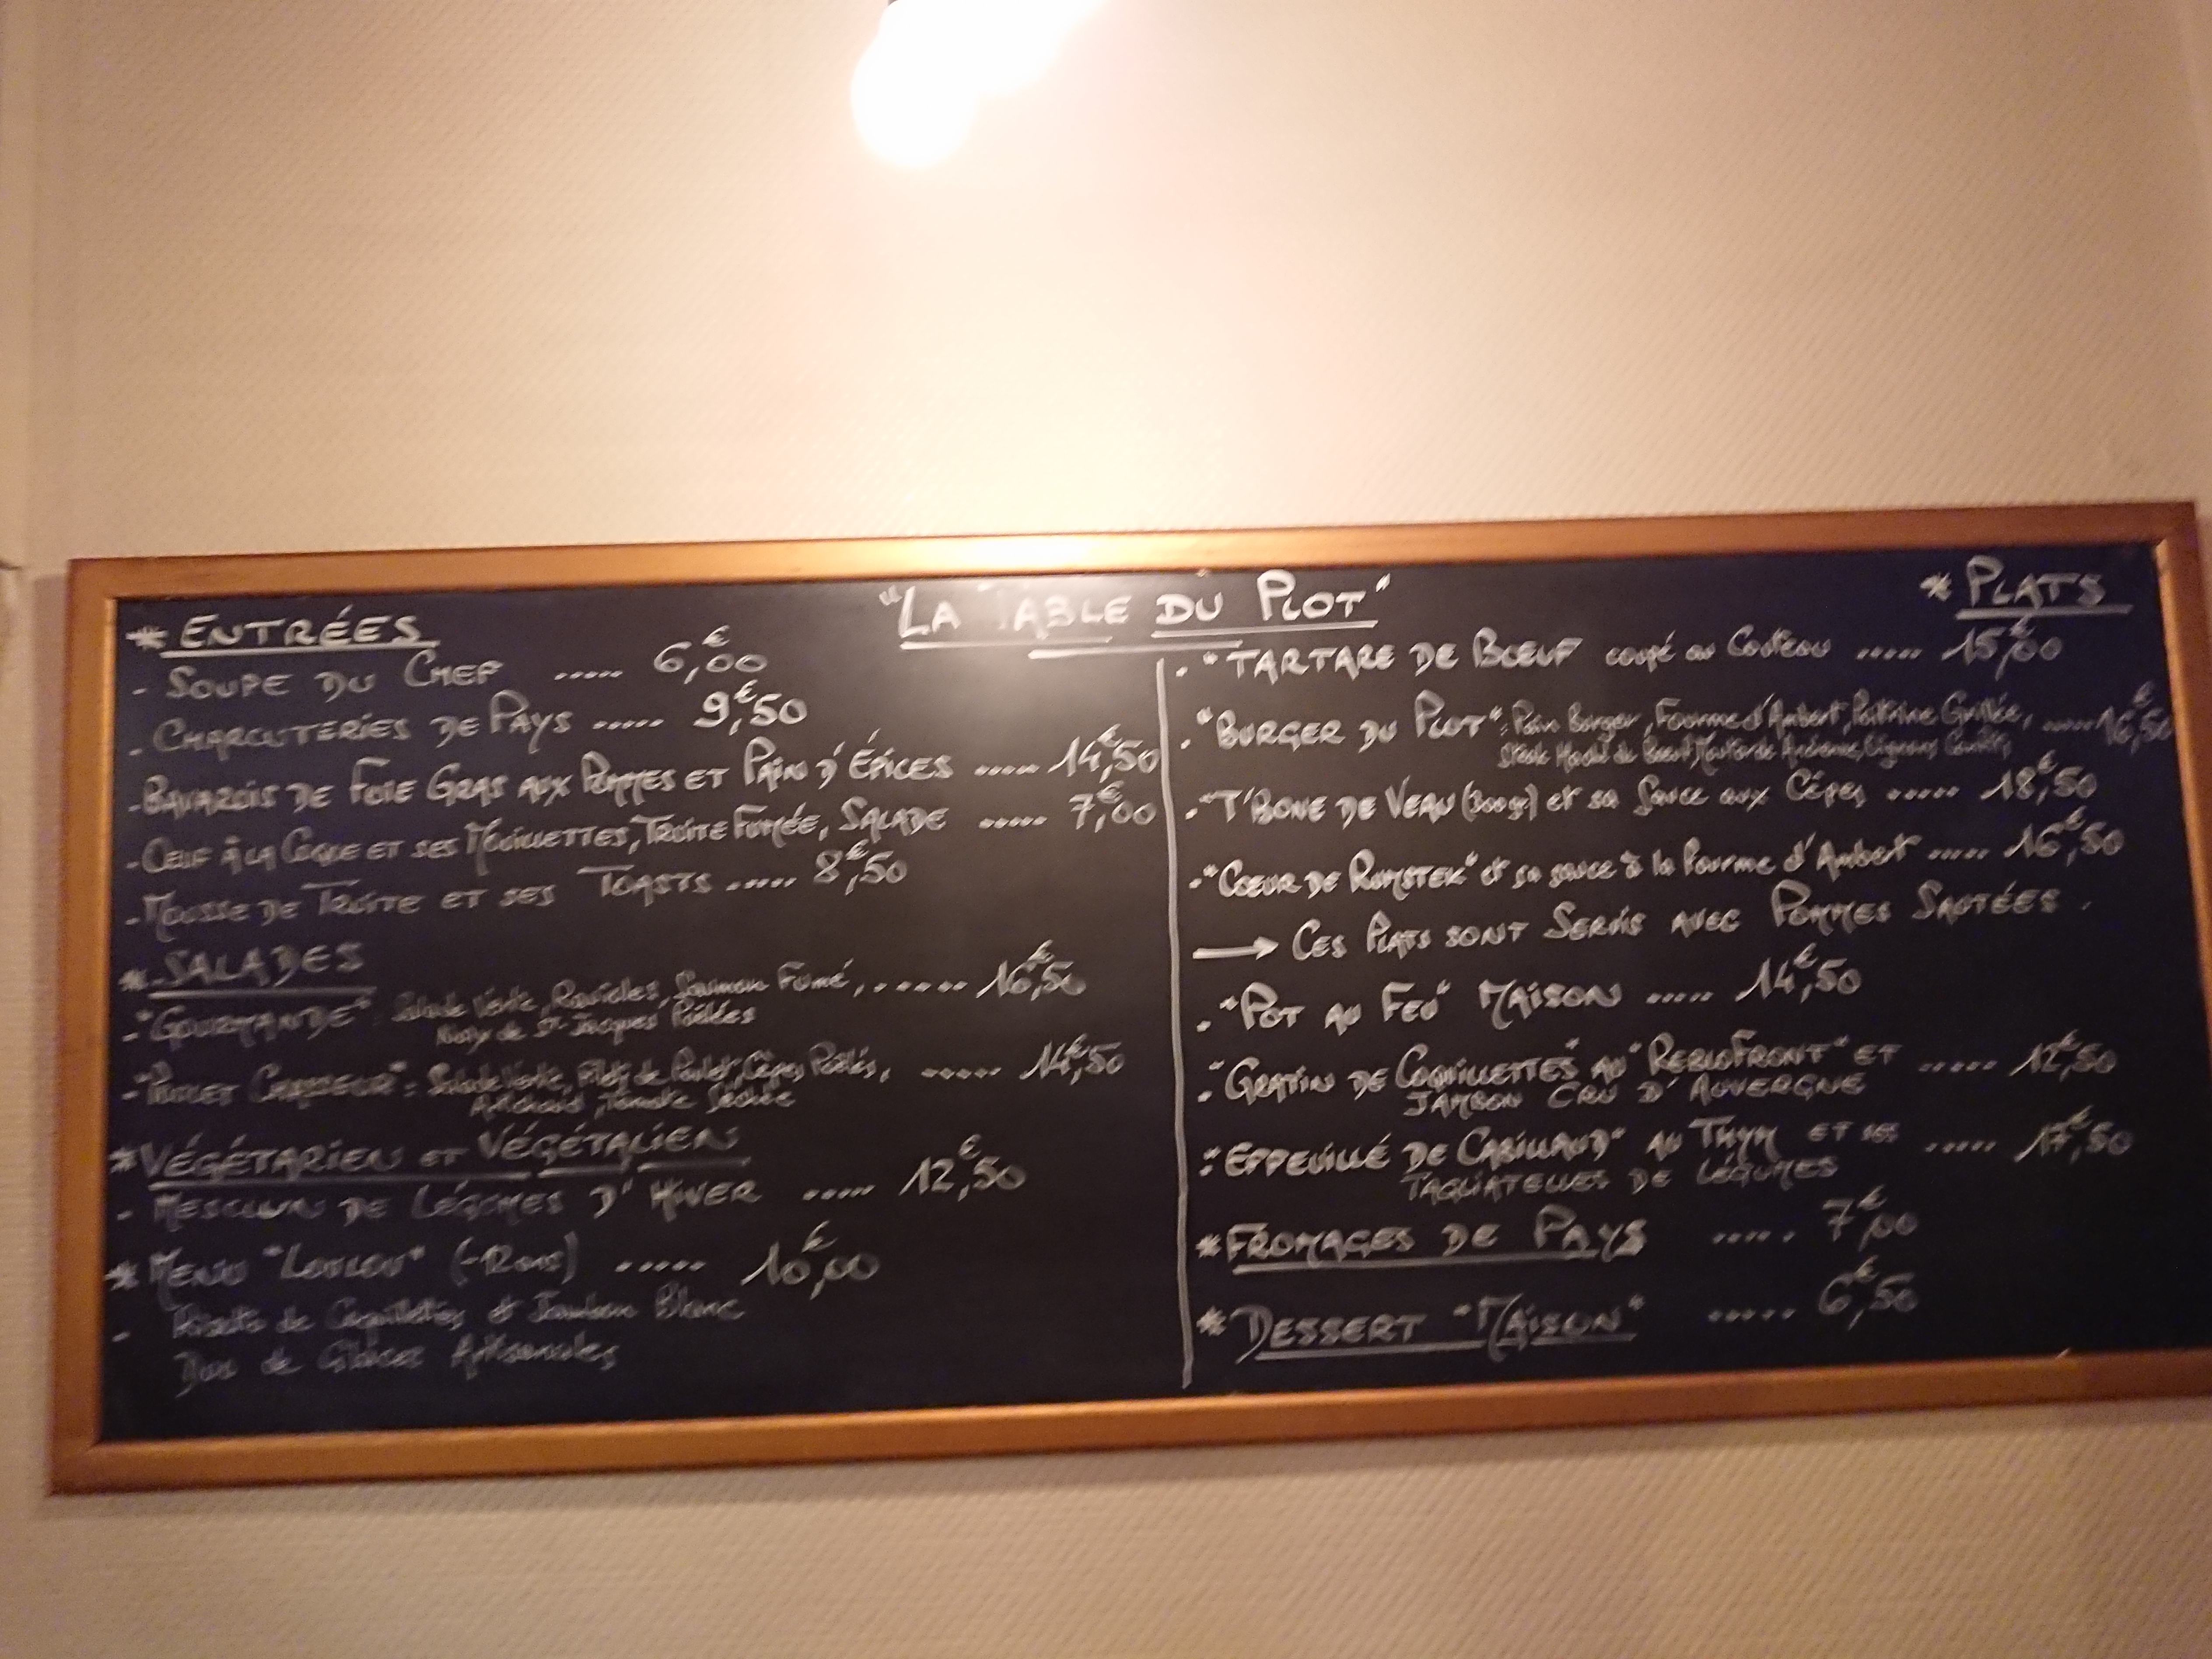 "LA TABLE DU PLOT"
* ENTRÉES
- SOUPE DU CHEF ..... 6,00€
- CHARCUTERIES DE PAYS ..... 9,50€
- BAVAROIS DE FOIE GRAS AUX POMMES ET PAIN D'ÉPICES ..... 14,50€
- ŒUF À LA COQUE ET SES MOUILLETTES, TRUITE FUMÉE, SALADE ..... 7,00€
- MOUSSE DE TRUITE ET SES TOASTS ..... 8,50€
* SALADES
- "GOURMANDE" : Salade Verte, Ravioles, Saumon Fumé, ...... 16,50€
Noix de St-Jacques Poêlées
- "POULET CHASSEUR" : Salade Verte, Filets de Poulet, Cèpes Poêlés, ..... 14,50€
Artichaud, Tomate Séchée
* VÉGÉTARIEN ET VÉGÉTALIEN
- MESCLUN DE LÉGUMES D'HIVER ..... 12,50€
* MENU "LOULOU" ..... 10,00€
- Risotto de Coquillettes et Jambon Blanc
Duo de Glaces Artisanales
* PLATS
- "TARTARE DE BŒUF coupé au Couteau ..... 15,00€
- "BURGER DU PLOT" : Pain Burger, Fourme d'Ambert, Poitrine Grillée, ..... 16,50€
Steak Haché de Boeuf, Moutarde Oignons Confits
- "T'BONE DE VEAU (300gr) et sa Sauce aux Cèpes ..... 18,50€
- "CŒUR DE RUMSTEK" et sa sauce à la Fourme d'Ambert ..... 16,50€
→ CES PLATS SONT SERVIS AVEC POMMES SAUTÉES.
- "POT AU FEU" MAISON ..... 14,50€
- "GRATIN DE COQUILLETTES" AU "REBLOFRONT" ET ..... 12,50€
JAMBON CRU D'AUVERGNE
- "EFFEUILLÉ DE CABILLAUD" AU THYM ET SES ..... 17,50€
TAGLIATELLES DE LÉGUMES
* FROMAGES DE PAYS ..... 7,00€
* DESSERT "MAISON" ..... 6,50€